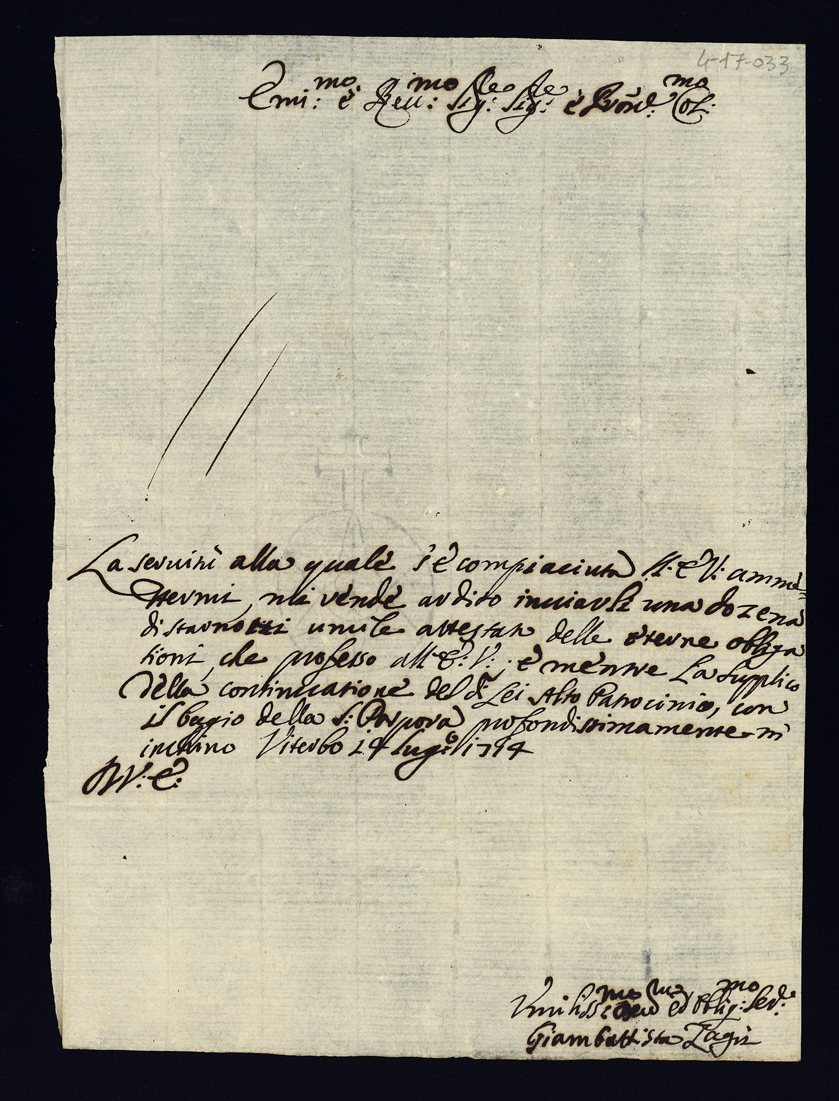 4-17-033
Emi:mo è Reu:mo Sig:re Sig:re è Pron̄e: Col:mo
La seruitù alla quale s'è compiaciuta l'E: V: amme=
ttermi, mi rende ardito inuiarle una dozena
di starnotti umile attestato delle eterne obliga
tioni, che professo all'E: V:, è mentre La supplico
della continuatione del di Lei Alto Patrocinio, con
il bagio della S: Porpora profondissimamente m'
inchino Viterbo 14 Lug:o 1714
D V: E:
Vmiliss:mo Deu:mo ed Oblig:mo Ser:e
Giambattista